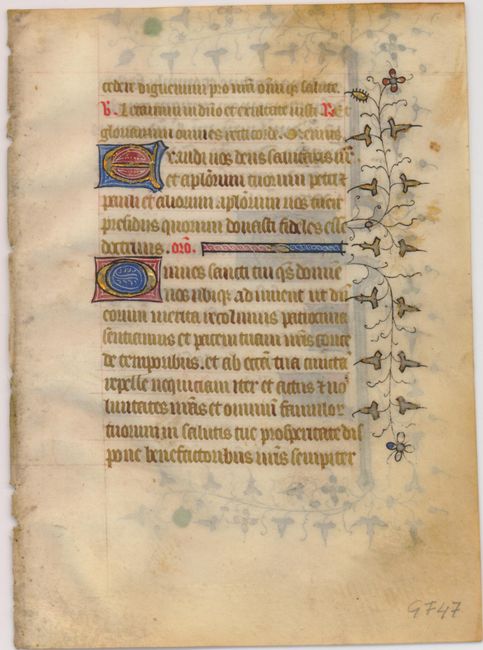 cedere dignemini pro nr̃a om̃iq; salute.
V. Letamini in dño et exultate iusti R. Et
gloriamini omnes recti corde. Oremus
Exaudi nos deus salutaris nr̃
et aplõrum tuorum petri ⁊
pauli et aliorum aplõrum nos tuere
presidiis quorum donasti fideles esse
doctrinis. orõ.
Omnes sancti tui qs̃ domine
nos ubiq; adiuvent ut dũ
eorum merita recolimus patrocinia
sentiamus et pacem tuam nr̃is conce
de temporibus. et ab ecc̃ia tua cunctã
repelle nequiciam iter et actus ⁊ uo
luntates nr̃as et omnium famulor
tuorum in salutis tue prosperitate dis
pone benefactoribus nr̃is sempiter
G F47